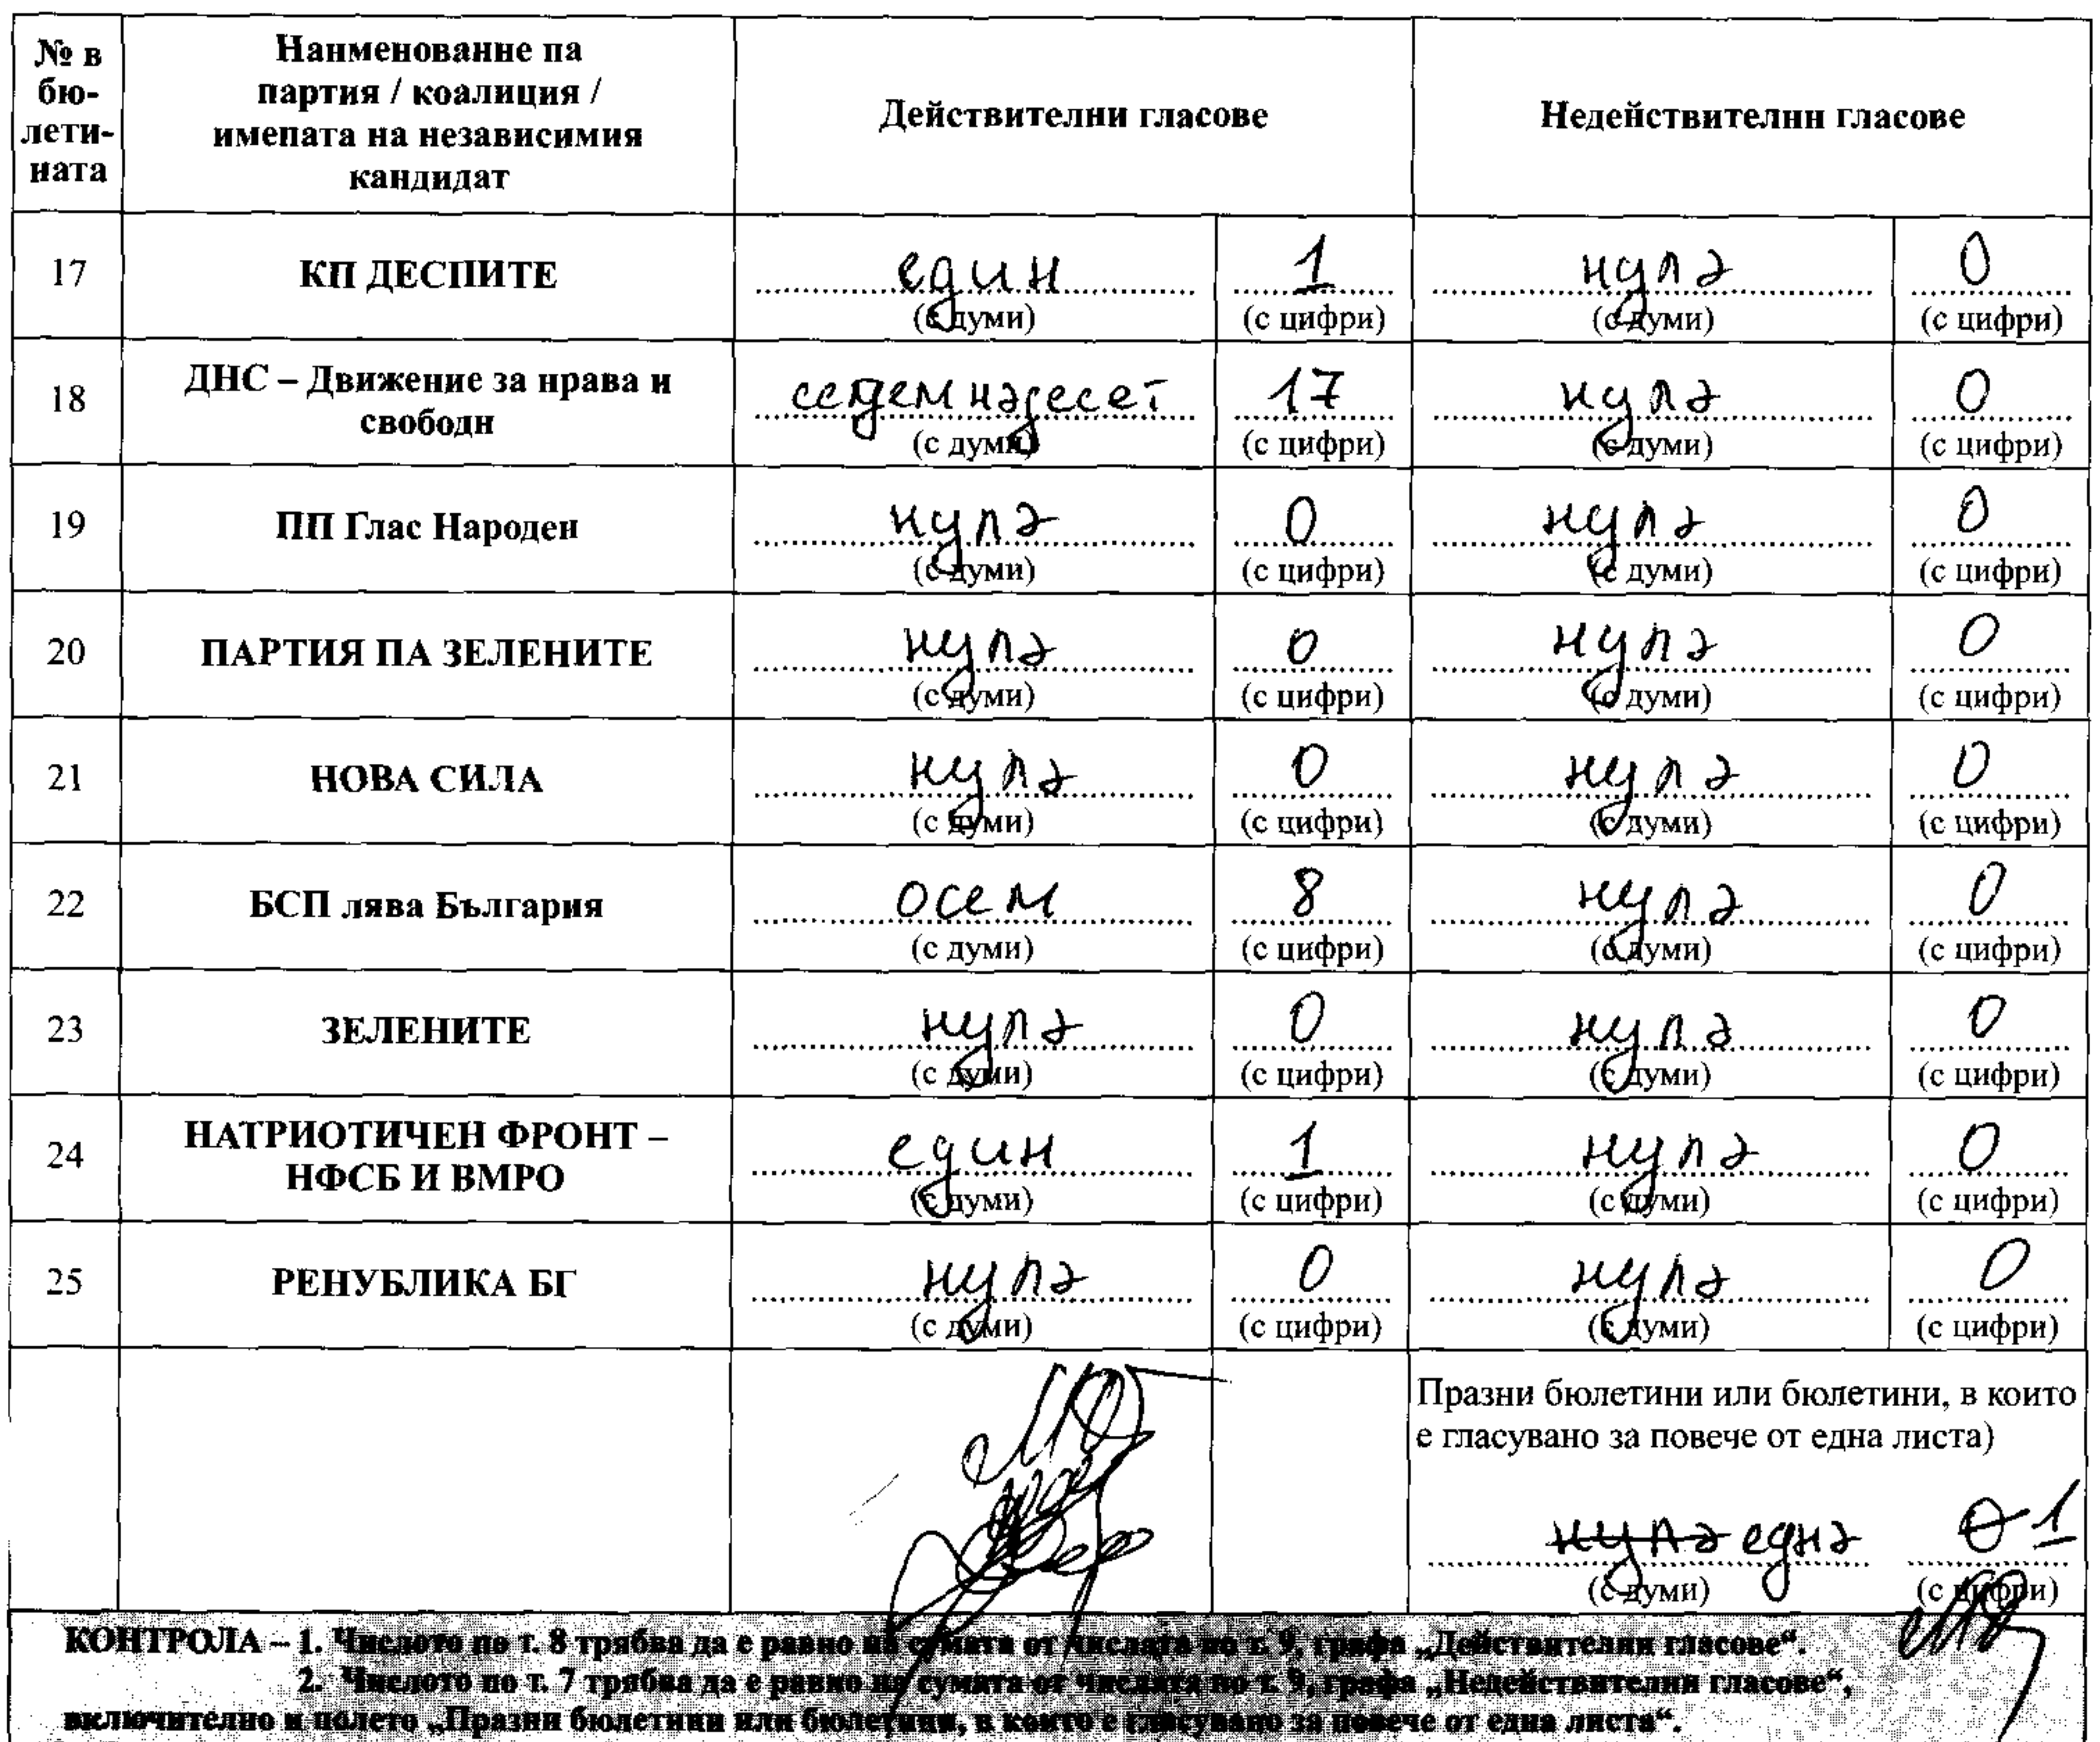 № в
бю-
лети-
ната
Нанменованне па
партия / коалиция /
имепата на независимия
кандидат
Действителни гласове
Недействителнн гласове
17 КП ДЕСПИТЕ един 1 нула 0
(с думи) (с цифри) (с думи) (с цифри)
18 ДНС – Движение за нрава и
свободн
седемнадесет 17 нула 0
(с думи) (с цифри) (с думи) (с цифри)
19 ПП Глас Народен нула 0 нула 0
(с думи) (с цифри) (с думи) (с цифри)
20 ПАРТИЯ ПА ЗЕЛЕНИТЕ нула 0 нула 0
(с думи) (с цифри) (с думи) (с цифри)
21 НОВА СИЛА нула 0 нула 0
(с думи) (с цифри) (с думи) (с цифри)
22 БСП лява България осем 8 нула 0
(с думи) (с цифри) (с думи) (с цифри)
23 ЗЕЛЕНИТЕ нула 0 нула 0
(с думи) (с цифри) (с думи) (с цифри)
24 НАТРИОТИЧЕН ФРОНТ –
НФСБ И ВМРО
един 1 нула 0
(с думи) (с цифри) (с думи) (с цифри)
25 РЕНУБЛИКА БГ нула 0 нула 0
(с думи) (с цифри) (с думи) (с цифри)
Празни бюлетини или бюлетини, в които
е гласувано за повече от една листа)
нула една 0 1
(с думи) (с цифри)
КОНТРОЛА – 1. Числото по т. 8 трябва да е равно на сумата от числата по т. 9, графа „Действителни гласове“.
2. Числото по т. 7 трябва да е равно на сумата от числата по т. 9, графа „Недействителни гласове“,
включително и полето „Празни бюлетини или бюлетини, в които е гласувано за повече от една листа“.